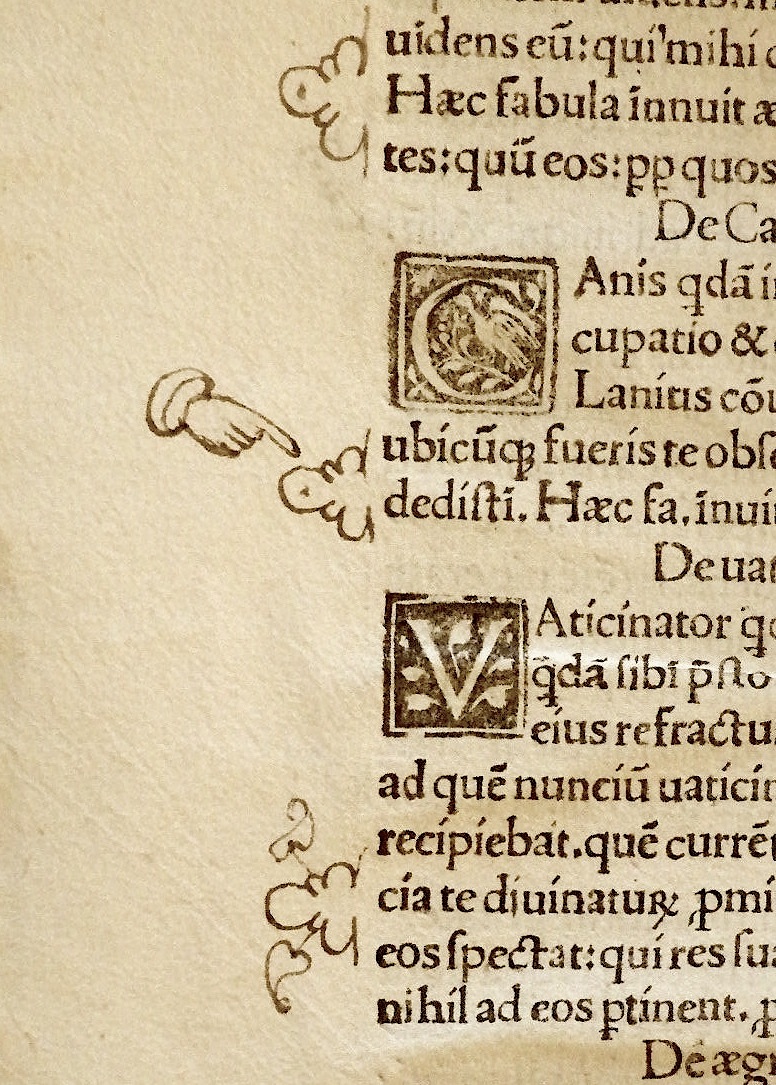 uidens eū:qui mihi
Hæc fabula īnuit æ
tes:quū eos:ꝓꝑ quos
De Ca
CAnis qdā i
cupatio &
Laniūs cōu
ubicūqꝫ fueris te obſe
dediſti. Hæc fa. īnui
De ua
VAticinator qd
qdā ſibi p̄ſto
eius refractu
ad quē nunciū uatici
recipiebat.quē currē
cia te diuinatuꝝ ꝓmi
eos ſpectat:qui res ſu
nihil ad eos ꝑtinent.
De æg